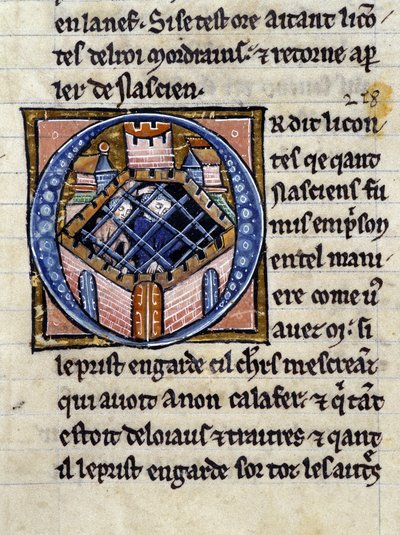 en la nef. Si se test ore aitant li cō
tes del roi mordrains. ⁊ retorne a p̄r
ler de Nascien.
218
R dit li con
tes qe qant
Nasciens fu
mis emp̄son
en tel mani
ere come uꝰ
auez oi. si
le prist en garde .i. chr̄s mescreāt
qui auoit a non calafer. ⁊ q̄ tāt
estoit deloiaus ⁊ traitres. ⁊ qant
il le prist en garde sor toz les autˢ